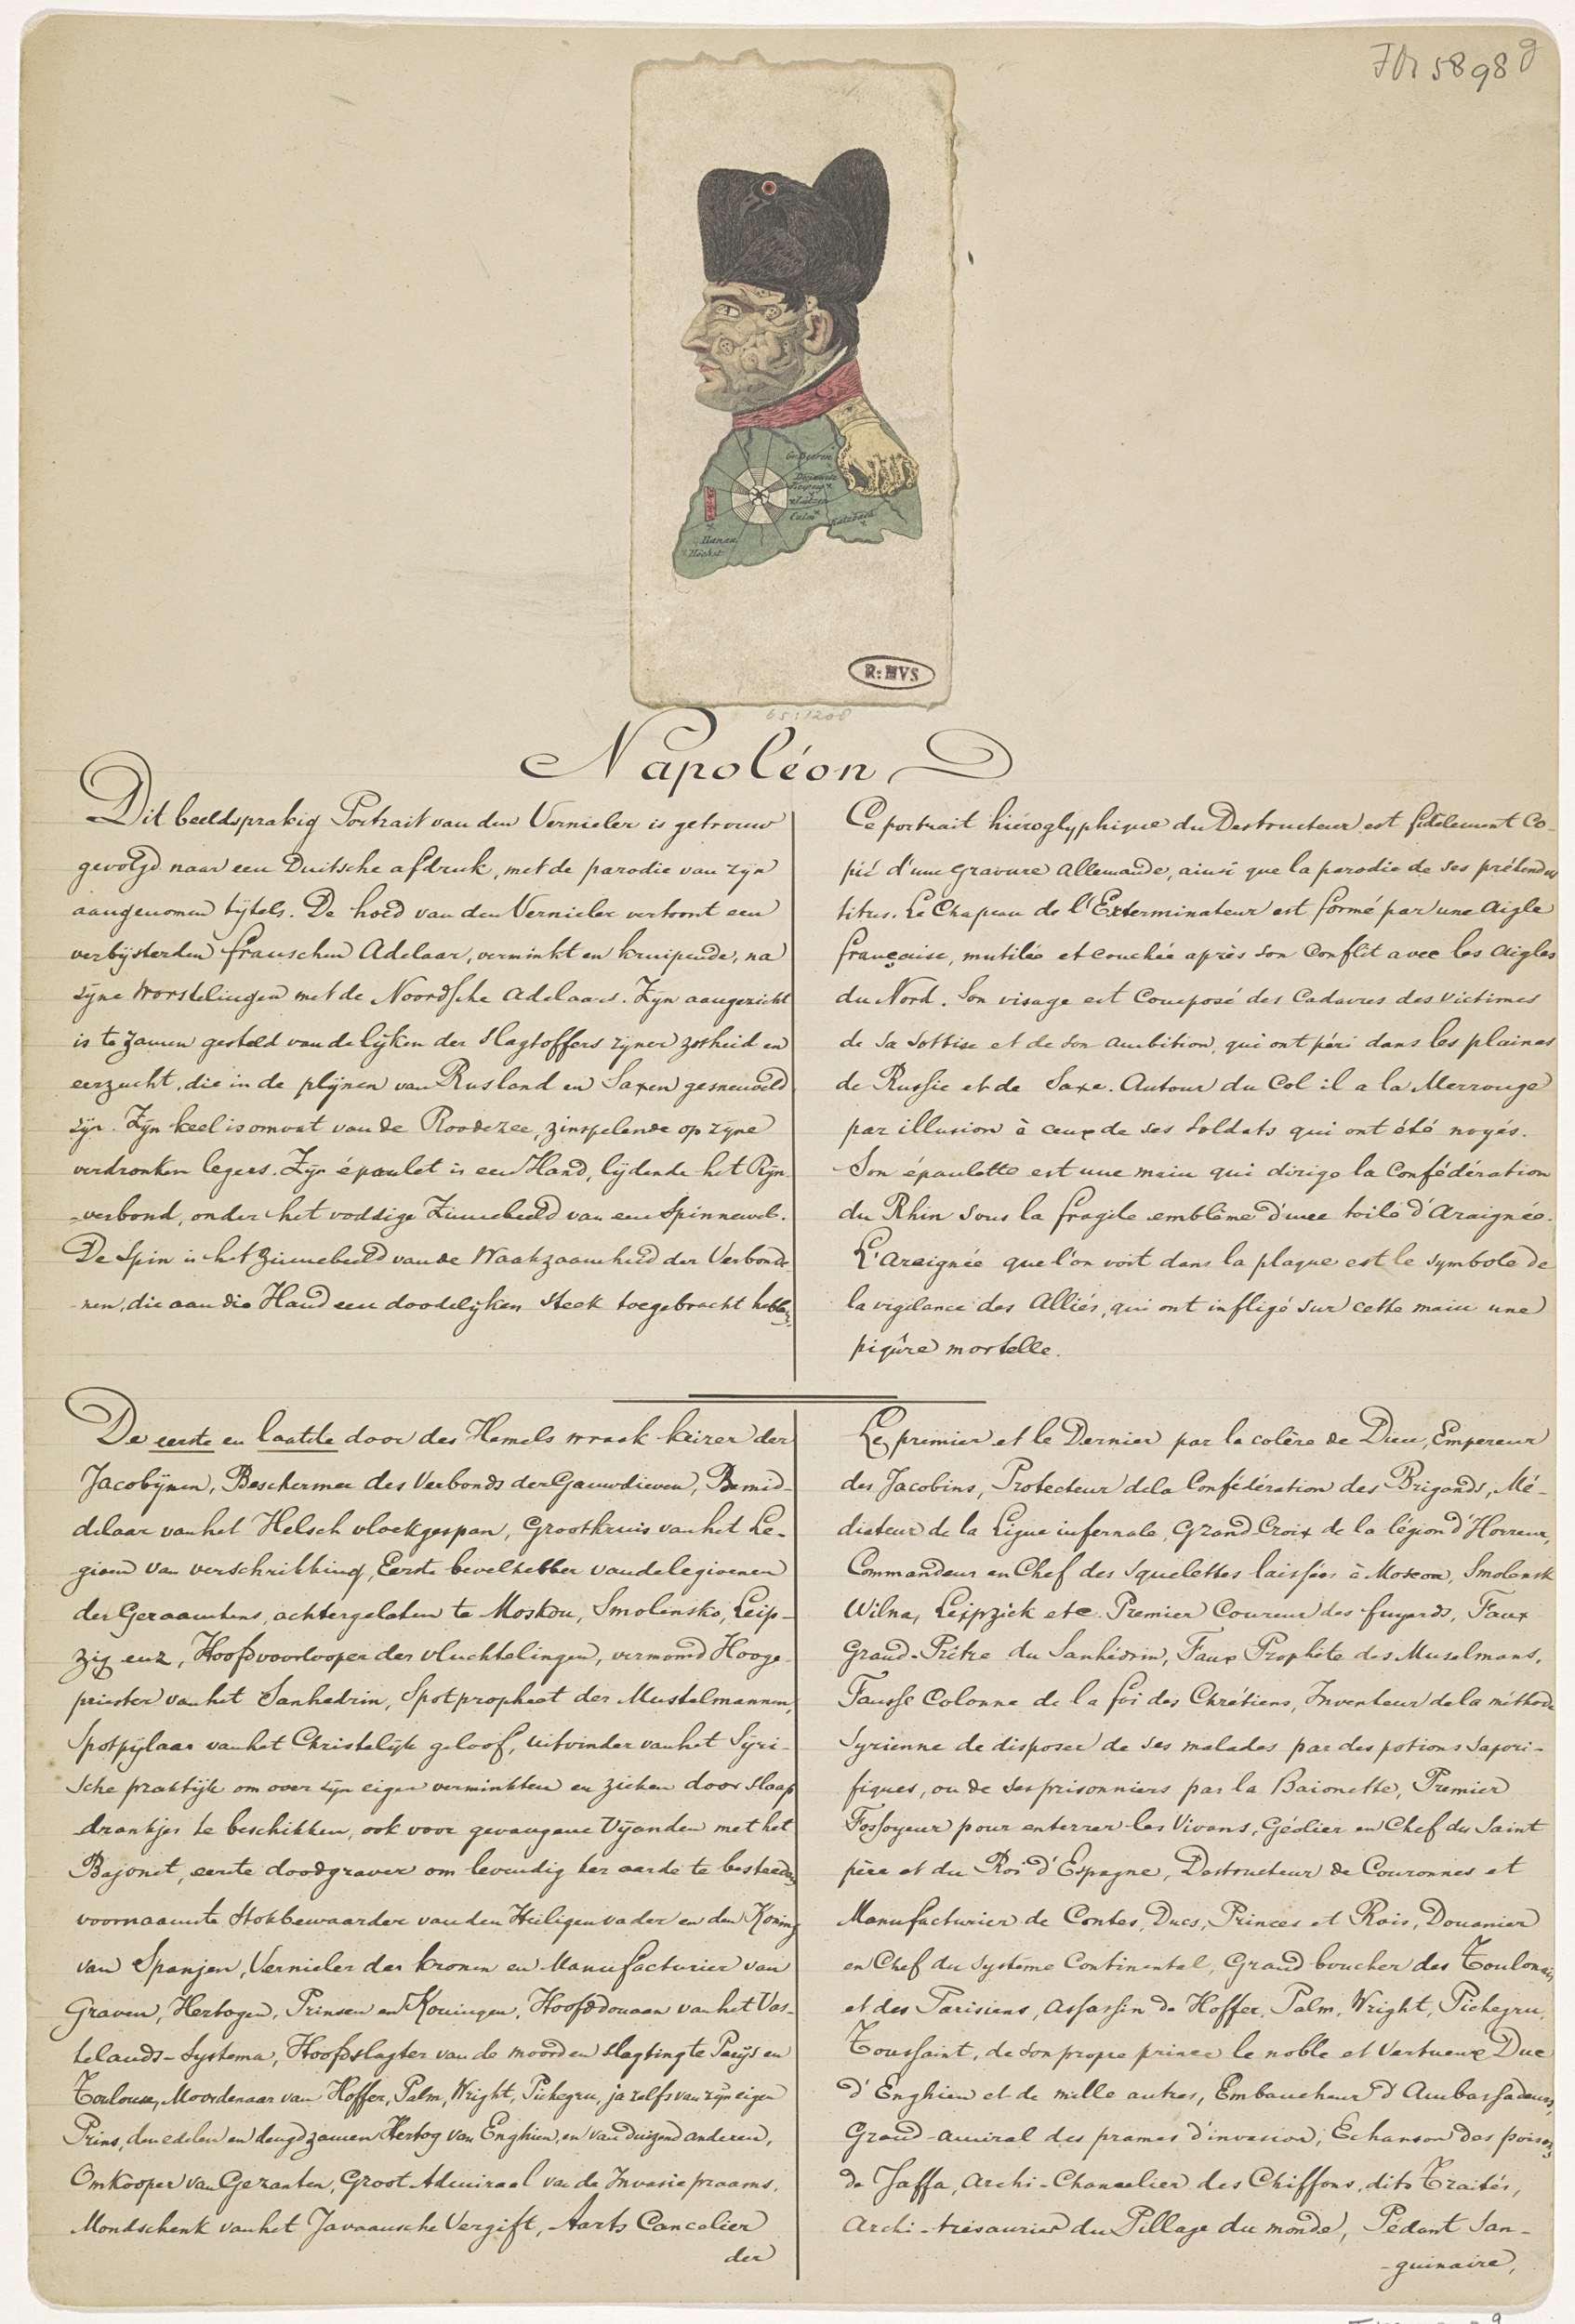 58 98 g
Gr. Beeren
Lützen
Culm
Katzbach
Hanau
Höchst
R:MVS
65:1208
Napoléon
Dit beeldsprakig Portrait van den Vernieler is getrouw
gevolgd naar een Duitsche afdruk, met de parodie van zÿn
aangenomen tÿtels. De hoed van den Vernieler vertoont een
verbÿsterden franschen Adelaar, verminkt en kruipende, na
zÿne worstelingen met de Noordsche adelaars. Zÿn aangezicht
is te zamen gesteld van de lÿken der slagtoffers zÿner zotheid en
eerzucht, die in de plÿnen van Rusland en Saxen gesneuveld
zÿn. Zÿn keel is omvat van de Roodezee, zinspelende op zÿne
verdronken legers. Zÿn épaulet is een Hand, lÿdende het Rÿn-
-verbond, onder het voddige Zinnebeeld van een Spinneweb.
De Spin is het Zinnebeeld van de Waakzaamheid der Verbonde-
-nen, die aan die Hand een doodelÿken steek toegebracht hebben.
Ce portrait hiéroglyphique du Destructeur est fidèlement Co-
pié d'une gravure allemande, ainsi que la parodie de ses prétendus
titres. Le Chapeau de l'Exterminateur est formé par une Aigle
françoise, mutilée et couchée après son Conflit avec les Aigles
du Nord. Son visage est Composé des Cadavres des victimes
de sa Sottise et de son ambition, qui ont péri dans les plaines
de Russie et de Saxe. Autour du Col il a la Merrouge
par illusion à ceux de ses Soldats qui ont été noyés.
Son épaulette est une main qui dirige la Confédération
du Rhin sous la fragile emblême d'une toile d'Araignée.
L'Araignée que l'on voit dans la plaque est le symbole de
la vigilance des Alliés, qui ont infligé sur cette main une
piqûre mortelle.
De eerste en laatste door des Hemels wraak keizer der
Jacobÿnen, Beschermer des Verbonds der Gauwdieven, Bemid-
delaar van het Helsch vloekgespan, Grootkruis van het Le-
gioen van verschrikking, Eerste bevelhebber van de legioenen
der Geraamtens, achtergelaten te Moskou, Smolensko, Leip-
zig enz, Hoofdvoorlooper der vluchtelingen, vermomd Hooge-
priester van het Sanhedrin, Spotpropheet der Muselmannen,
Spotpÿlaar van het Christelÿk geloof, uitvinder van het Sÿri-
sche praktÿk om over zÿn eigen verminkten en zieken door slaap
drankjes te beschikken, ook voor gevangene Vÿanden met het
Bajonet, eerste doodgraver om levendig ter aarde te besteeden,
voornaamste Stokbewaarder van den Heiligen vader en den Koning
van Spanjen, Vernieler der kronen en Manufacturier van
Graven, Hertogen, Prinsen en Koningen, Hoofddouaen van het Vas-
telands-Systema, Hoofdslagter van de moord en slagting te Parÿs en
Toulouse, Moordenaar van Hoffer, Palm, Wright, Pichegru, ja zelfs van zÿn eigen
Prins, den edelen en deugdzamen Hertog van Enghien, en van duizend anderen,
Omkooper van Gezanten, Groot Admiraal van de Invasie praams,
Mondschenk van het Javaansche Vergift, Aarts Cancelier
der
Le premier et le Dernier par la colère de Dieu, Empereur
des Jacobins, Protecteur de la Confédération des Brigands, Mé-
diateur de la Ligue infernale, Grand-Croix de la légion d'Horreur,
Commandeur en Chef des Squelettes laissées à Moscou, Smolensk
Wilna, Leipzick etc. Premier Coureur des fuyards, Faux
Grand-Prêtre du Sanhédrin, Faux Prophète des Muselmans,
Fausse Colonne de la foi des Chrétiens, Inventeur de la méthode
Syrienne de disposer de ses malades par des potions sapori-
fiques, ou de ses prisonniers par la Baionette, Premier
Fossoyeur pour enterrer les Vivans, Géolier en Chef du Saint
père et du Roi d'Espagne, Destructeur de Couronnes et
Manufacturier de Contes, Ducs, Princes et Rois, Douanier
en Chef du système Continental, Grand boucher des Toulonais
et des Parisiens, assassin de Hoffer, Palm, Wright, Pichegru,
Toussaint, de son propre prince le noble et Vertueux Duc
d'Enghien et de mille autres, Embaucheur d'Ambassadeurs,
Grand-amiral des prames d'invasion, Echanson des poisons
de Jaffa, Archi-Chancelier des Chiffons, dits Traités,
Archi-trésaurier du Pillage du monde, Pédant San-
-guinaire,